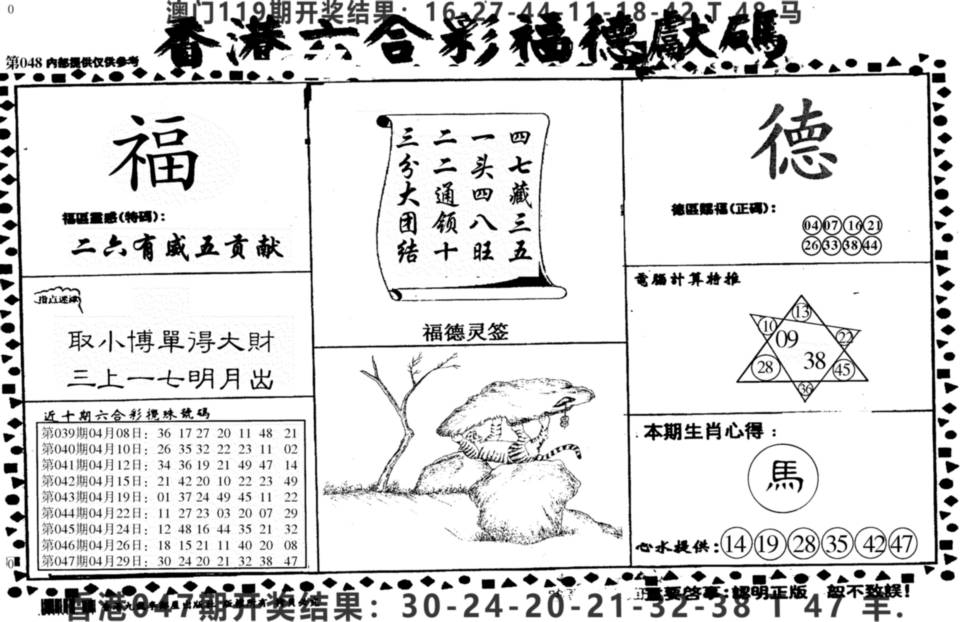 澳门119期开奖结果：16-27-44-11-18-42 T 48 马
香港六合彩福德獻碼
第048 内部提供仅供参考
福
福區靈感(特碼)：
二六有威五贡献
指点迷津
取小博單得大財
三上一七明月出
近十期六合彩攪珠號碼
第039期04月08日：36 17 27 20 11 48 21
第040期04月10日：26 35 32 22 23 11 02
第041期04月12日：34 36 19 21 49 47 14
第042期04月15日：21 42 20 10 22 23 49
第043期04月19日：01 37 24 49 45 11 22
第044期04月22日：11 27 23 03 20 07 29
第045期04月24日：12 48 16 44 35 21 32
第046期04月26日：18 15 21 11 40 20 08
第047期04月29日：30 24 20 21 32 38 47
四七藏三五
一头四八旺
二二通领十
三分大团结
福德灵签
德
德區賜福(正碼)：
04 07 16 21
26 33 38 44
電腦計算特推
13
10 09 22
28 38 45
36
本期生肖心得：
馬
心水提供：14 19 28 35 42 47
重要啓事：認明正版 恕不致誤！
香港047期开奖结果：30-24-20-21-32-38 T 47 羊.